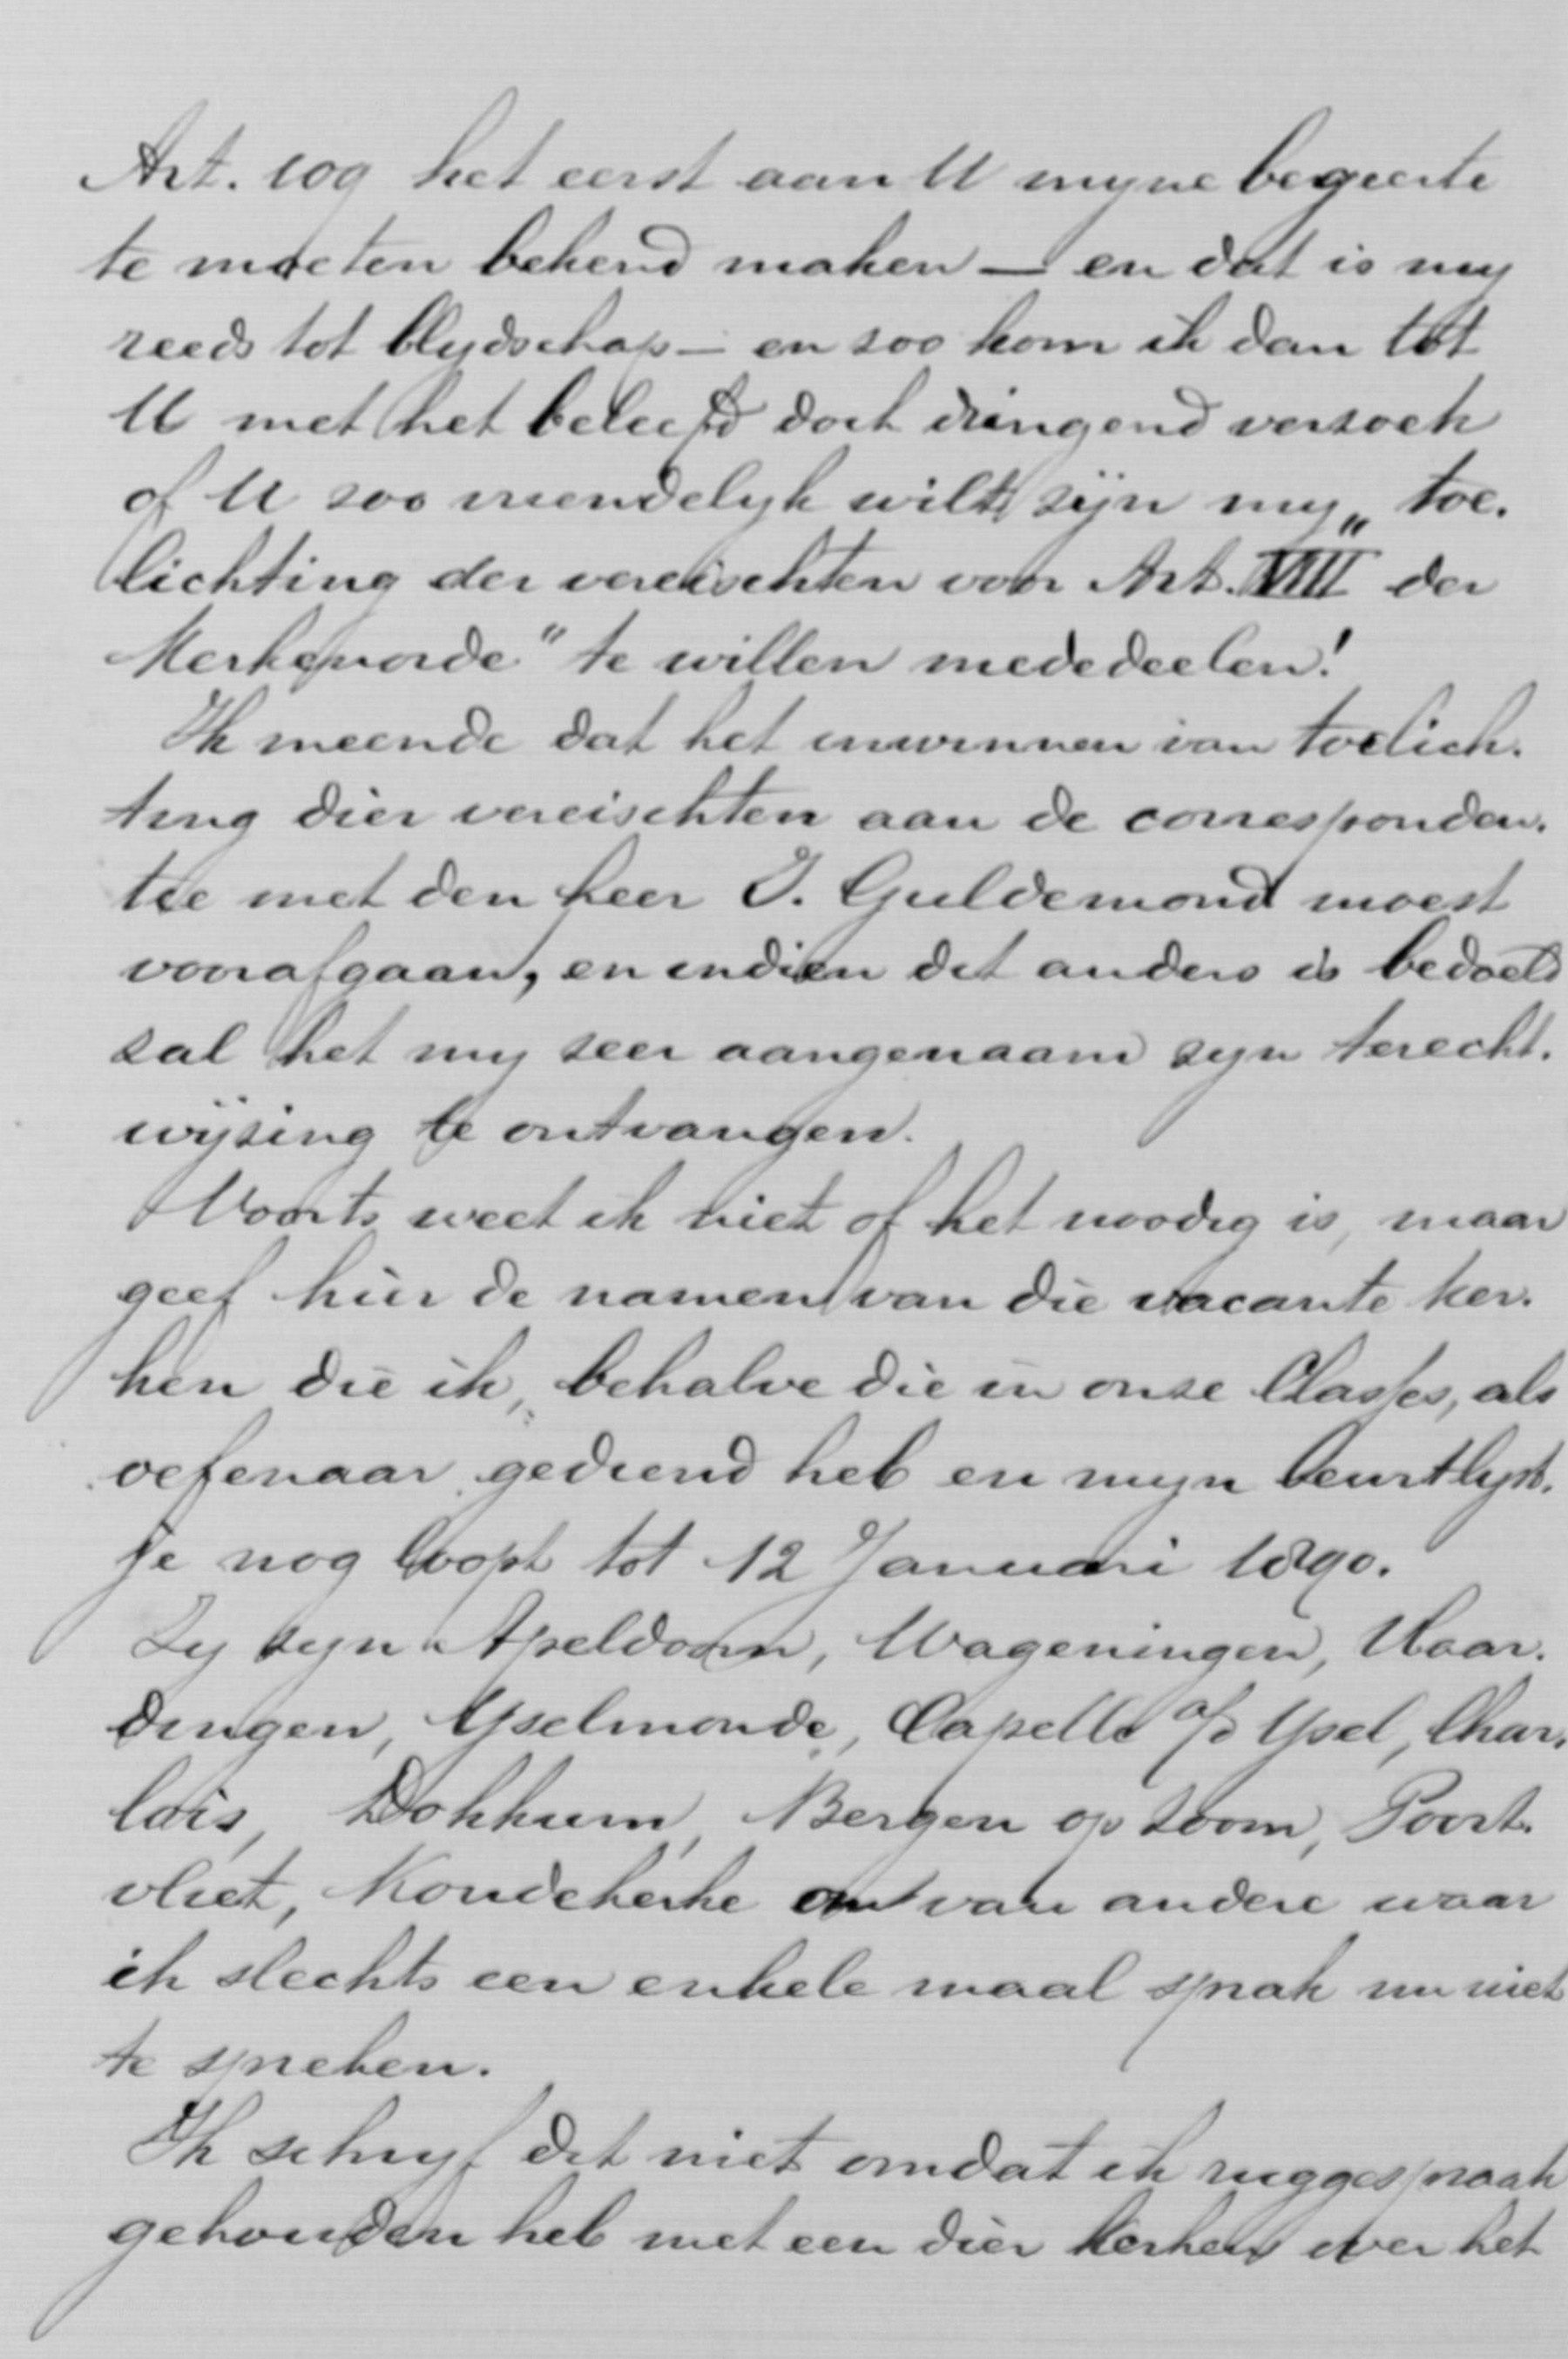 Art. 109 het eerst aan U myne begeerte
te moeten bekend maken — en dat is my
reeds tot blydschap — en zoo kom ik dan tot
U met het beleefd doch dringend verzoek
of U zoo vriendelyk wilt zijn my „toe-
lichting der vereischten voor Art. VIII der
Kerkenorde" te willen mededeelen!
Ik meende dat het inwinnen van toelich-
ting dier vereischten aan de corresponden-
tie met den heer J. Guldemond moest
voorafgaan, en indien dit anders is bedoeld
zal het my zeer aangenaam zyn terecht-
wijzing te ontvangen.
Voorts weet ik niet of het noodig is, maar
geef hier de namen van die vacante ker-
ken die ik, behalve die in onze Classes, als
oefenaar gediend heb en myn beurtlyst-
je nog loopt tot 12 Januari 1890.
Zy zyn Apeldoorn, Wageningen, Vlaar-
dingen, Yselmonde, Capelle a/d Ysel, Char-
lois, Dokkum, Bergen op Zoom, Poort-
vliet, Koudekerke om van andere waar
ik slechts een enkele maal sprak nu niet
te spreken.
Ik schryf dit niet omdat ik ruggespraak
gehouden heb met een dier kerken over het